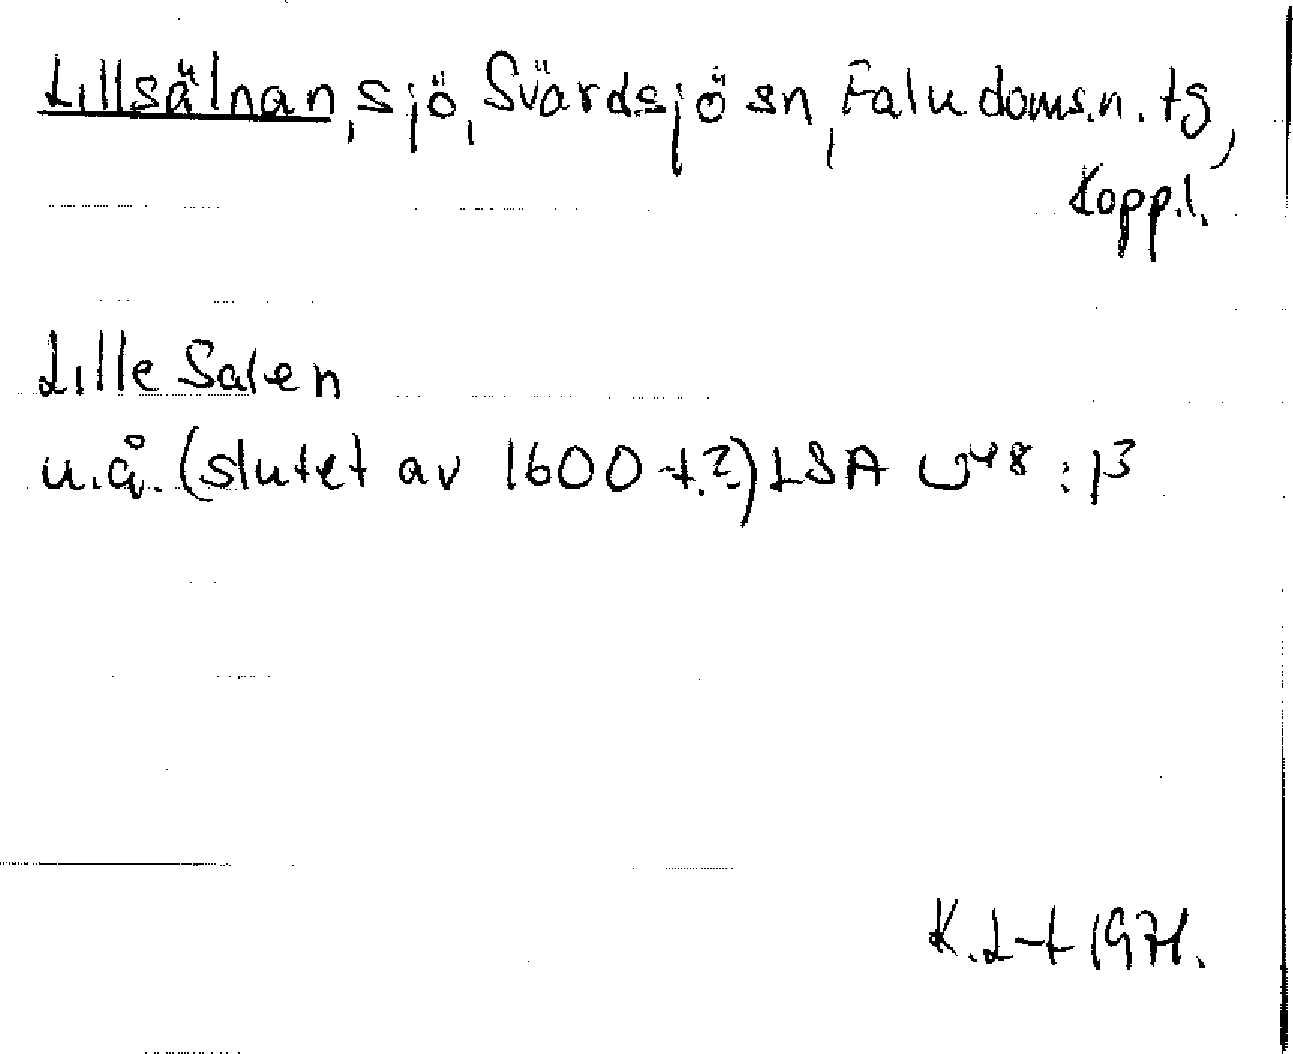 Lillsälnan, sjö, Svärdsjö sn, Falu doms.n. tg,
Kopp.l.
Lille Salen
u.å. (slutet av 1600 t.?) LSA U48:13
K.L-t 1971.